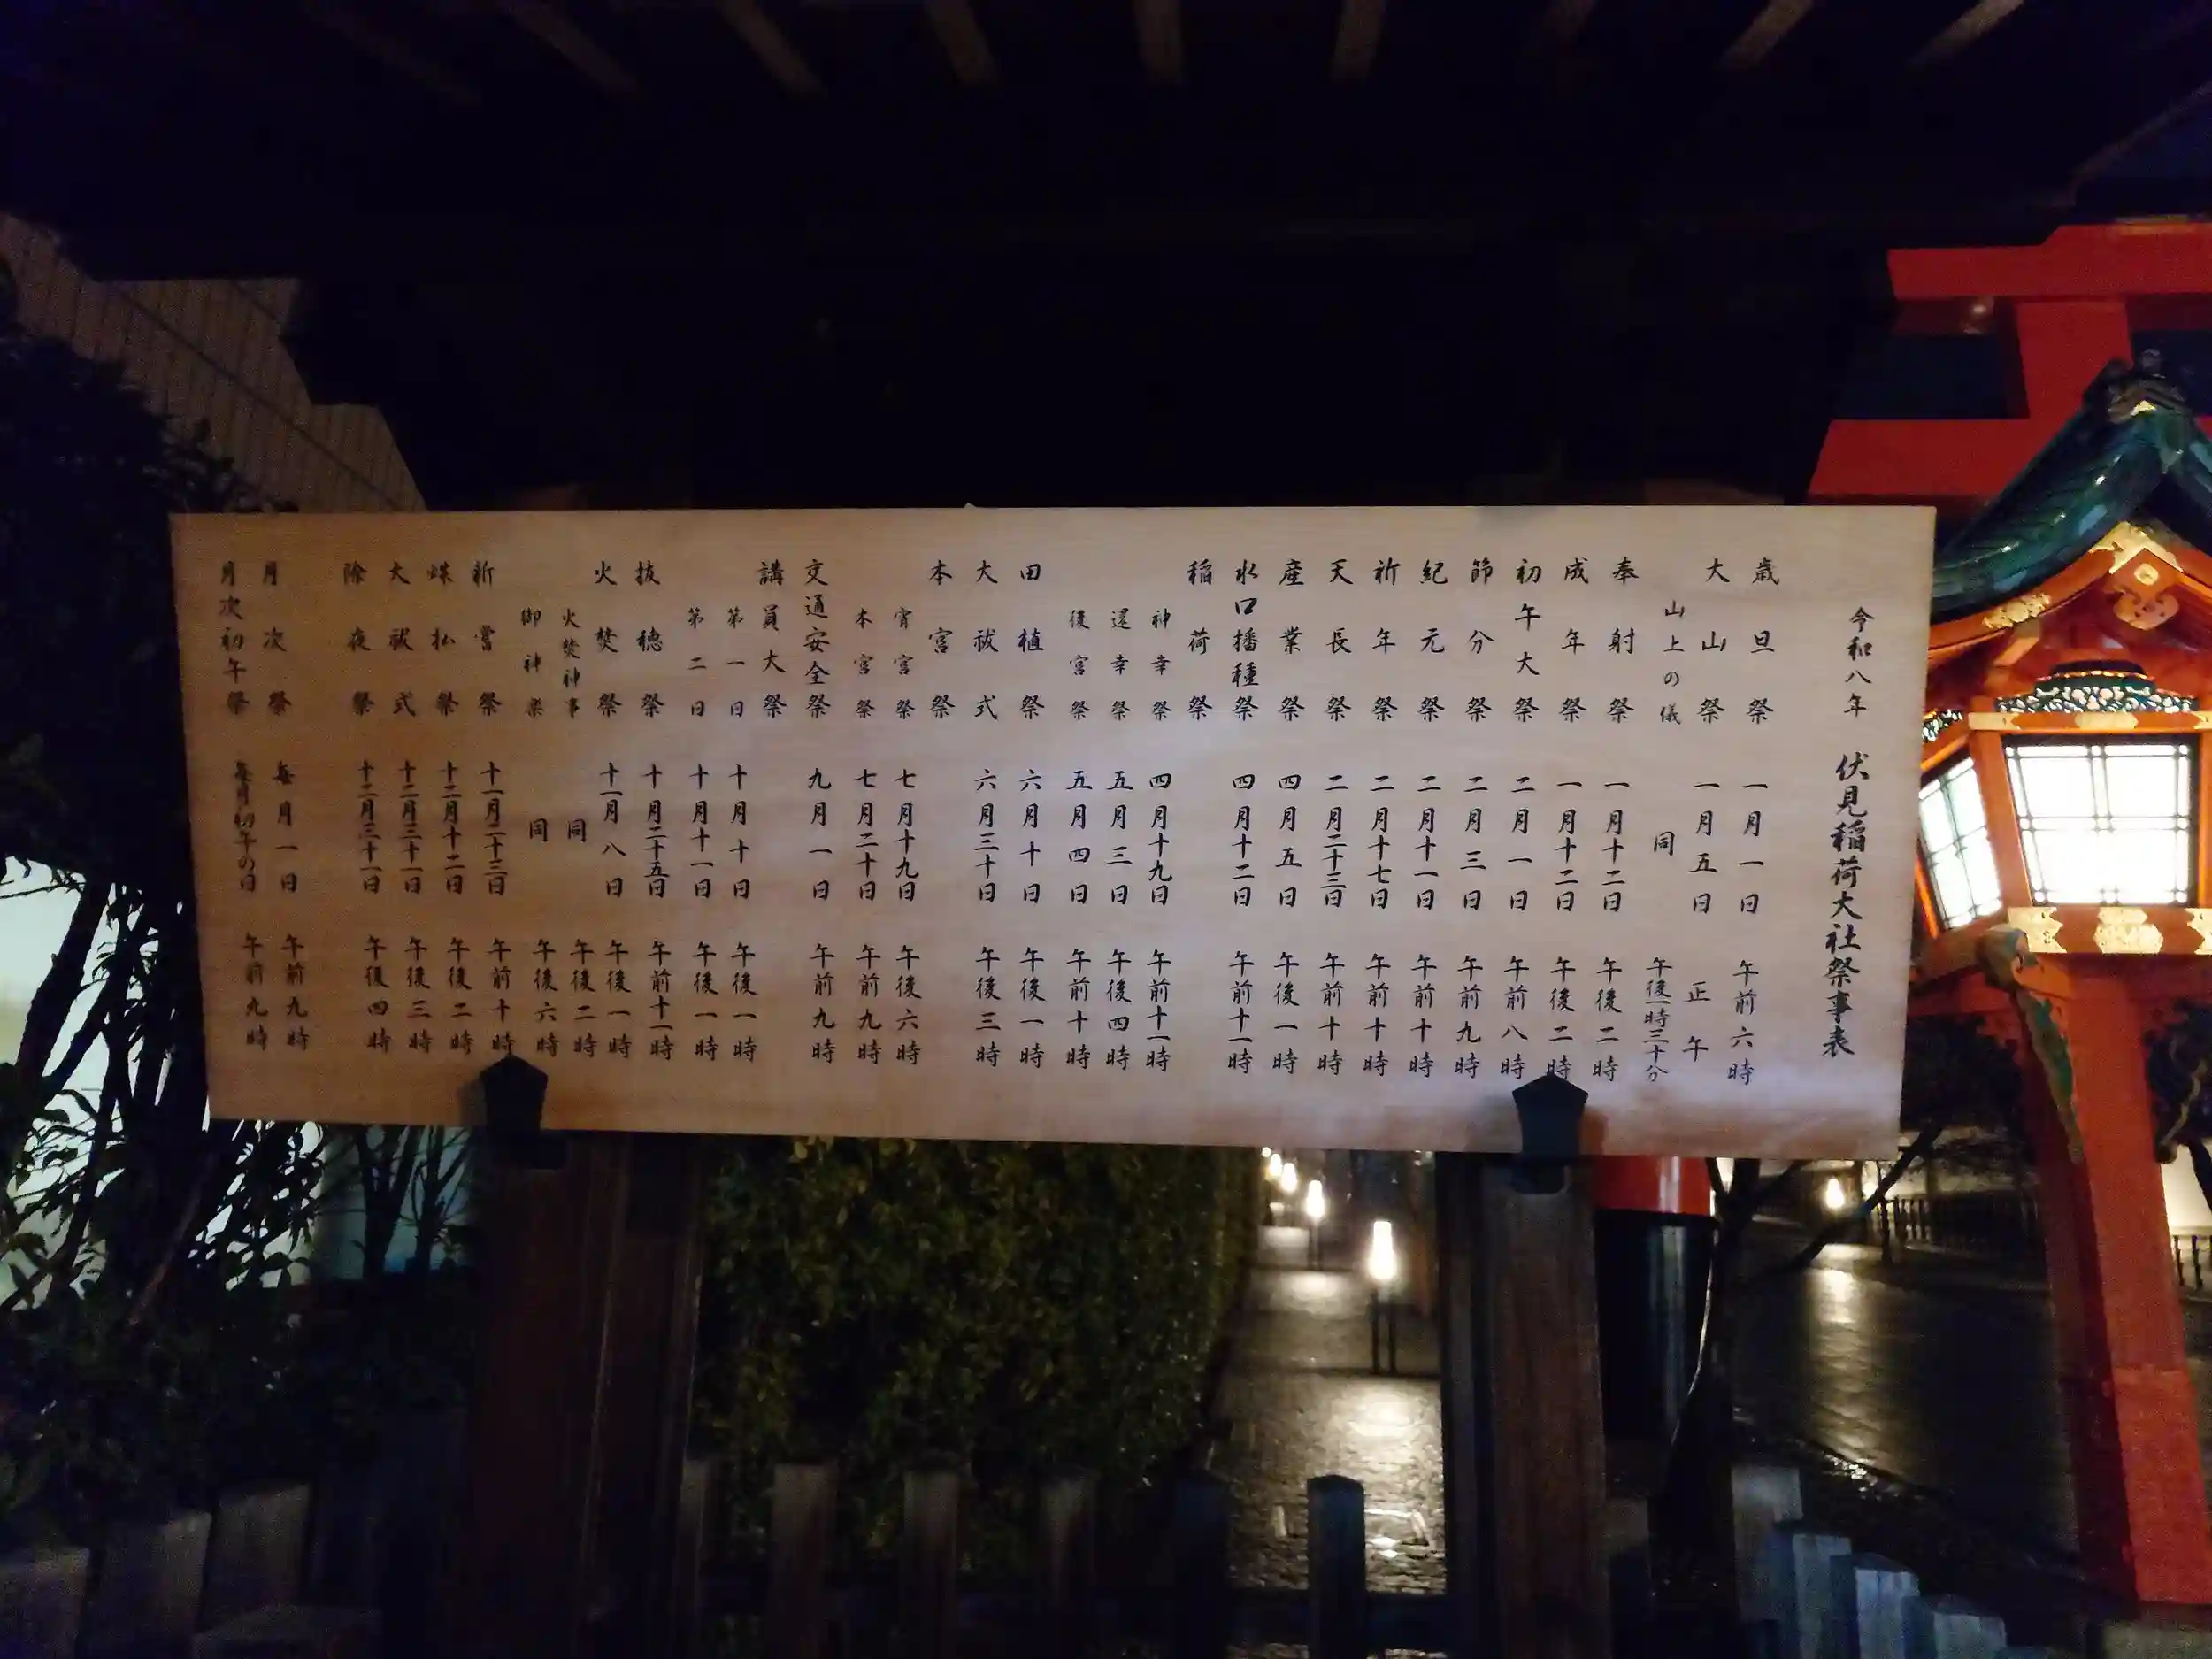 令和八年 伏見稲荷大社祭事表
歳旦祭 一月一日 午前六時
大山祭 一月五日 正午
山上の儀 同 午後一時三十分
奉射祭 一月十二日 午後二時
成年祭 一月十二日 午後二時
初午大祭 二月一日 午前八時
節分祭 二月三日 午前九時
紀元祭 二月十一日 午前十時
祈年祭 二月十七日 午前十時
天長祭 二月二十三日 午前十時
産業祭 四月五日 午後一時
水口播種祭 四月十二日 午前十一時
稲荷祭
神幸祭 四月十九日 午前十一時
還幸祭 五月三日 午後四時
後宮祭 五月四日 午前十時
田植祭 六月十日 午後一時
大祓式 六月三十日 午後三時
本宮祭
宵宮祭 七月十九日 午後六時
本宮祭 七月二十日 午前九時
交通安全祭 九月一日 午前九時
講員大祭
第一日 十月十日 午後一時
第二日 十月十一日 午後一時
抜穂祭 十月二十五日 午前十一時
火焚祭 十一月八日 午後一時
火焚神事 同 午後二時
御神楽 同 午後六時
新嘗祭 十一月二十三日 午前十時
煤払祭 十二月十二日 午後二時
大祓式 十二月三十一日 午後三時
除夜祭 十二月三十一日 午後四時
月次祭 毎月一日 午前九時
月次初午祭 毎月初午の日 午前九時